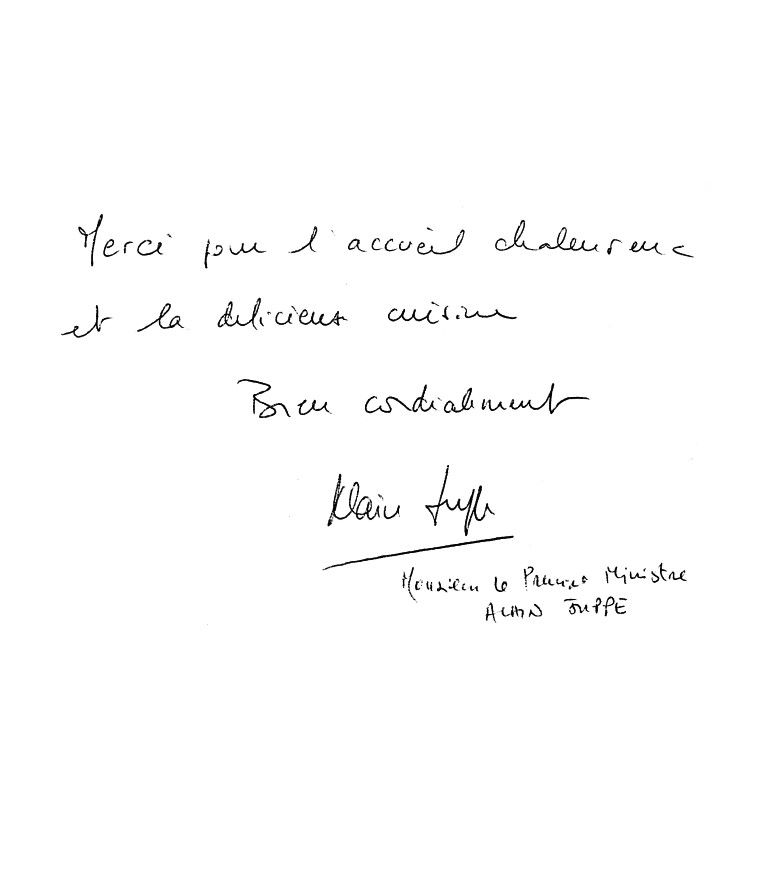 Merci pour l'accueil chaleureux
et la delicieux cuisine
Bien cordialement
Alain Juppé
Monsieur le Premier Ministre
ALAIN JUPPÉ